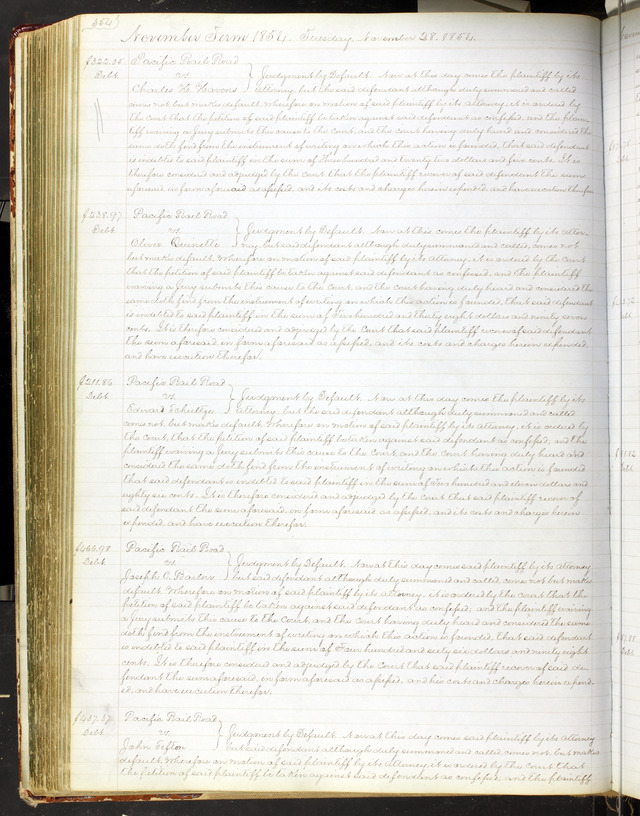 354
November Term 1854. Tuesday, November 28. 1854.
$322.05 Pacific Rail Road
Debt vs } Judgment by Default. Now at this day comes the plaintiff by its
Charles H. Havens attorney, but the said defendant although duly summoned and called
comes not but makes default. Wherefore on motion of said plaintiff by its attorney, it is ordered by
the Court that the petition of said plaintiff be taken against said defendant as confessed, and the plain-
tiff waiving a jury submits this cause to the Court, and the Court having duly heard and considered the
same doth find from the instrument of writing on which this action is founded, that said defendant
is indebted to said plaintiff in the sum of Three hundred and twenty two dollars and five cents. It is
therefore considered and adjudged by the Court that the plaintiff recover of said defendant the sum
aforesaid, in form aforesaid as assessed, and its costs and charges herein expended, and have execution therefor.
$238.97 Pacific Rail Road
Debt vs } Judgment by Default. Now at this comes the plaintiff by its attor-
Oliver ney, but said defendant although duly summoned and called, comes not
but makes default. Wherefore on motion of said plaintiff by its attorney, it is ordered by the Court
that the petition of said plaintiff be taken against said defendant as confessed, and the plaintiff
waiving a jury submits this cause to the Court, and the Court having duly heard and considered the
same doth find from the instrument of writing on which this action is founded, that said defendant
is indebted to said plaintiff in the sum of Two hundred and thirty eight dollars and ninety seven
cents. It is therefore considered and adjudged by the Court that said plaintiff recover of said defendant
the sum aforesaid, in form aforesaid as assessed, and its costs and charges herein expended,
and have execution therefor.
$211.86 Pacific Rail Road
Debt. vs. } Judgment by Default. Now at this day comes the plaintiff by its
Edward Schultze attorney, but the said defendant although duly summoned and called
comes not, but makes default. Wherefore on motion of said plaintiff by its attorney, it is ordered by
the Court, that the petition of said plaintiff be taken against said defendant as confessed, and the
plaintiff waiving a jury submits this cause to the Court and the Court having duly heard and
considered the same doth find from the instrument of writing on which this action is founded
that said defendant is indebted to said plaintiff in the sum of Two hundred and eleven dollars and
eighty six cents. It is therefore considered and adjudged by the Court that said plaintiff recover of
said defendant the sum aforesaid, in form aforesaid as assessed, and its costs and charges herein
expended, and have execution therefor.
$466.98 Pacific Rail Road
Debt. vs. } Judgment by Default. Now at this day comes said plaintiff by its attorney
Joseph C. Barlow but said defendant although duly summoned and called comes not but makes
default. Wherefore on motion of said plaintiff by its attorney, it is ordered by the Court that the
petition of said plaintiff be taken against said defendant as confessed; and the plaintiff waiving
a jury submits this cause to the Court, and the Court having duly heard and considered the same
doth find from the instrument of writing on which this action is founded, that said defendant
is indebted to said plaintiff in the sum of Four hundred and sixty six dollars and ninety eight
cents. It is therefore considered and adjudged by the Court that said plaintiff recover of said de-
fendant the sum aforesaid, in form aforesaid as assessed, and his costs and charges herein expend-
ed, and have execution therefor.
Pacific Rail Road
Debt. vs. } Judgment by Default. Now at this day comes said plaintiff by its attorney
John Tefton but said defendant although duly summoned and called comes not, but makes
default. Wherefore on motion of said plaintiff by its attorney, it is ordered by the Court that
the petition of said plaintiff be taken against said defendant as confessed and the plaintiff